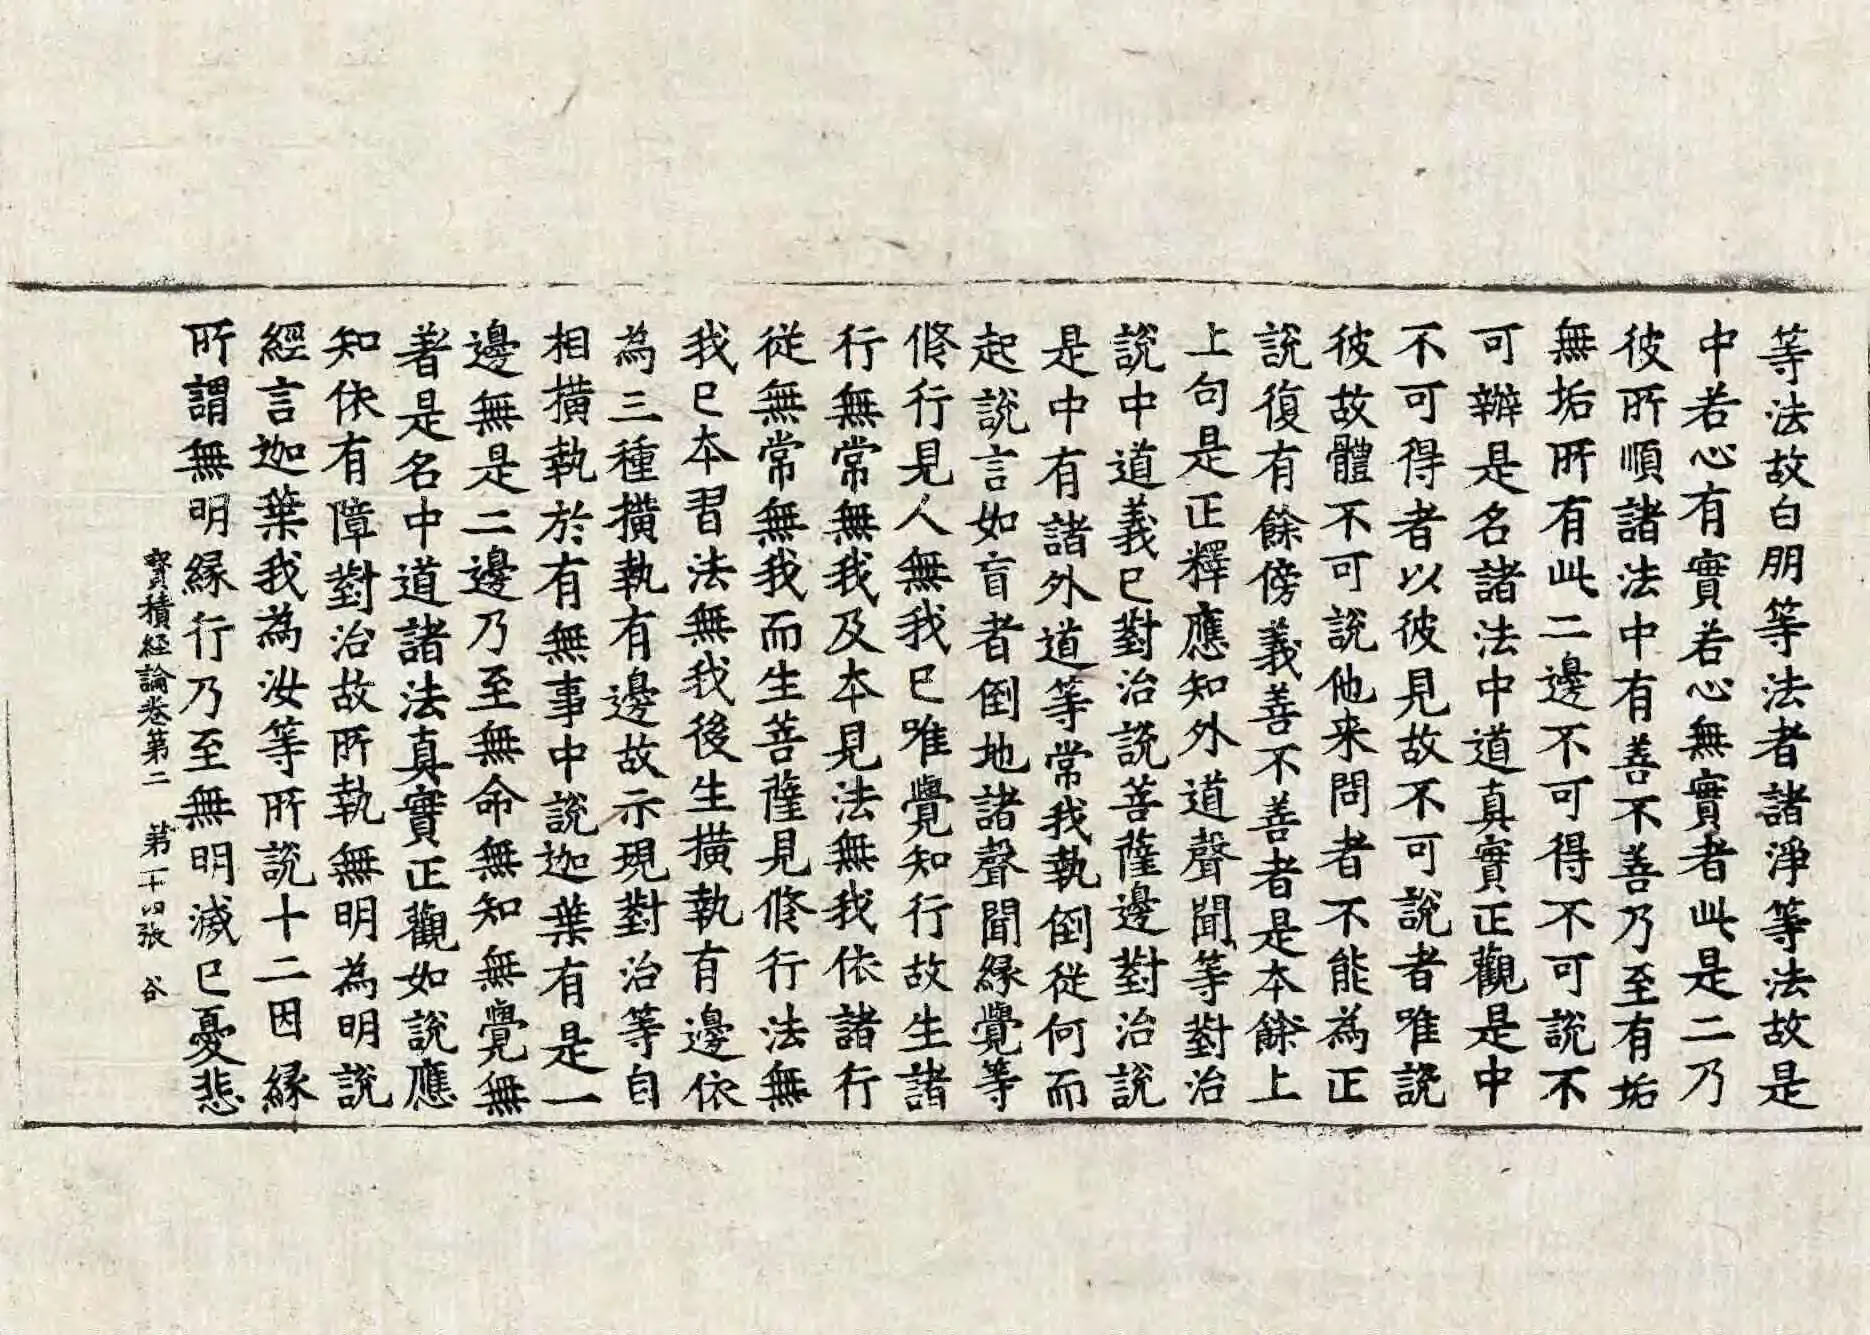 等法故白朋等法者諸淨等法故是
中若心有實若心無實者此是二乃
彼所順諸法中有善不善乃至有垢
無垢所有此二邊不可得不可說不
可辦是名諸法中道真實正觀是中
不可得者以彼見故不可說者唯說
彼故體不可說他来問者不能為正
說復有餘傍義善不善者是本餘上
上句是正釋應知外道聲聞等對治
說中道義已對治說菩薩邊對治說
是中有諸外道等常我執倒從何而
起說言如盲者倒地諸聲聞縁覺等
俢行見人無我已唯覺知行故生諸
行無常無我及本見法無我依諸行
從無常無我而生菩薩見俢行法無
我已本習法無我後生横執有邊依
為三種横執有邊故示現對治等自
相横執於有無事中說迦葉有是一
邊無是二邊乃至無命無知無覺無
著是名中道諸法真實正觀如說應
知依有障對治故所執無明為明說
經言迦葉我為汝等所說十二因縁
所謂無明縁行乃至無明滅已憂悲
寶積経論卷第二　第二十四張　谷